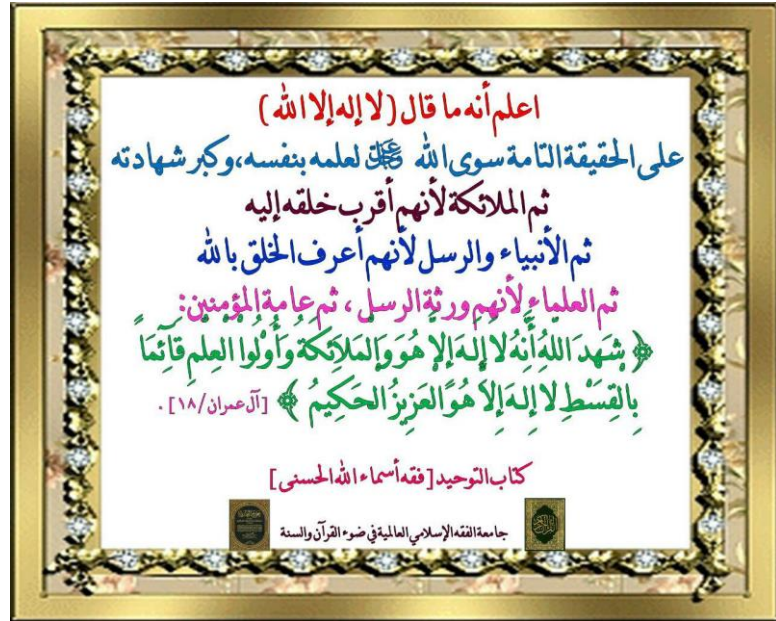 اعلم أنه ما قال (لا إله إلا الله)
على الحقيقة التامة سوى الله ﷻ لعلمه بنفسه، وكبر شهادته
ثم الملائكة لأنهم أقرب خلقه إليه
ثم الأنبياء والرسل لأنهم أعرف الخلق بالله
ثم العلماء لأنهم ورثة الرسل ، ثم عامة المؤمنين:
﴿ شَهِدَ اللّهُ أَنَّهُ لاَ إِلَـهَ إِلاَّ هُوَ وَالْمَلاَئِكَةُ وَأُوْلُواْ الْعِلْمِ قَآئِمَاً
بِالْقِسْطِ لاَ إِلَـهَ إِلاَّ هُوَ الْعَزِيزُ الْحَكِيمُ ﴾ [آل عمران/١٨] .
كتاب التوحيد [فقه أسماء الله الحسنى]
جامعة الفقه الإسلامي العالمية في ضوء القرآن والسنة